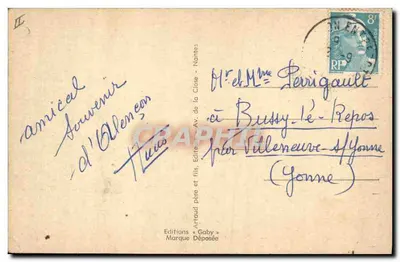 II
amical
souvenir
d'Alençon
Artaud père et fils, Edit. Av. de la Close - Nantes
Editions « Gaby »
Marque Déposée
8F
RF
Mr et Mme Perrigault
à Bussy-le-Repos
par Villeneuve-s/Yonne
(Yonne)
CPARAMA